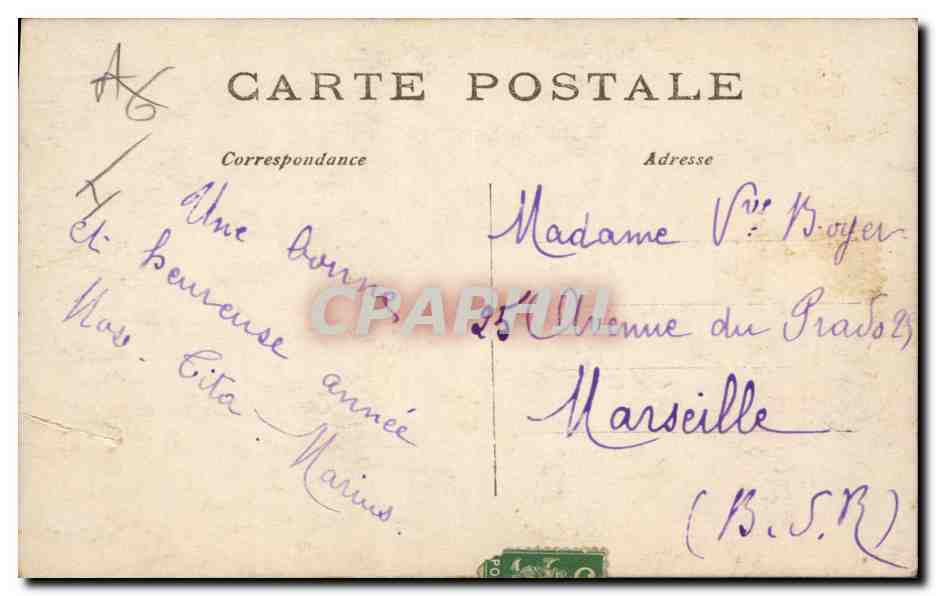 A6
CARTE POSTALE
Correspondance
Adresse
Une bonne
et heureuse année
Tita Marius.
Madame Vve Boyer
25 Avenue du Prado 25
Marseille
(B.d.R)
CPAPHIL
PO